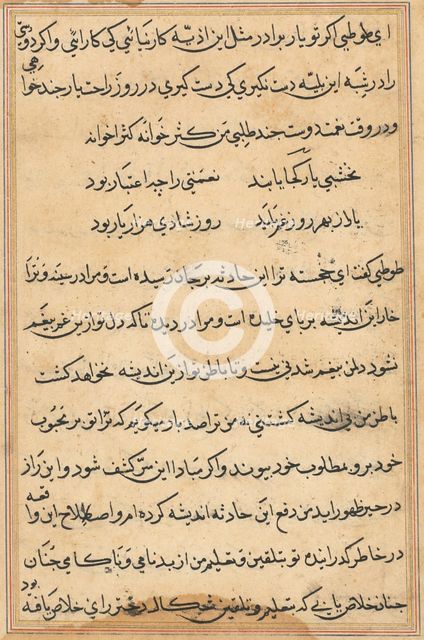 ای طوطی اگر تو یار بوادر مثل این اذیه کار نیائی کی کار ائی و اکر دوستی
را در شبه این بلیه دست نکیری کی دست کیری در روز راحت یار چند خواهی
و در وقت نعمت دوست چند طلبی من کثر خوانه کثر اخوانه
نخشبی یار کجا یابند نعمتی را چه اعتبار بود
یار از بهر روز غم باید روز شادی هزار یار بود
طوطی کفت ای خجسته ترا این حادثه بر جان رسیده است و مرا در سینه و ترا
خار این اندیشه بر پای خلیده است و مرا در دیده تا که دل تو ازین غم بیغم
نشود دل من بیغم شدنی نیست و تا باطن تو ازین اندیشه نخواهد کشت
باطن من بی اندیشه کشتنی نه من ترا صد بار میکویم که ترا توبر محبوب
خود برو بمطلوب خود پیوند و اکر مبادا این سر کشف شود و این راز
در حیز ظهور اید من دفع این حادثه اندیشه کرده ام و اصلاح این واقعه
در خاطر کذرانیده تو بتلقین و تعلیم من از بدنامی و ناکامی چنان
چنان خلاص یابی که بتعلیم و تلقین شحکال دختر رای خلاص یافته بود